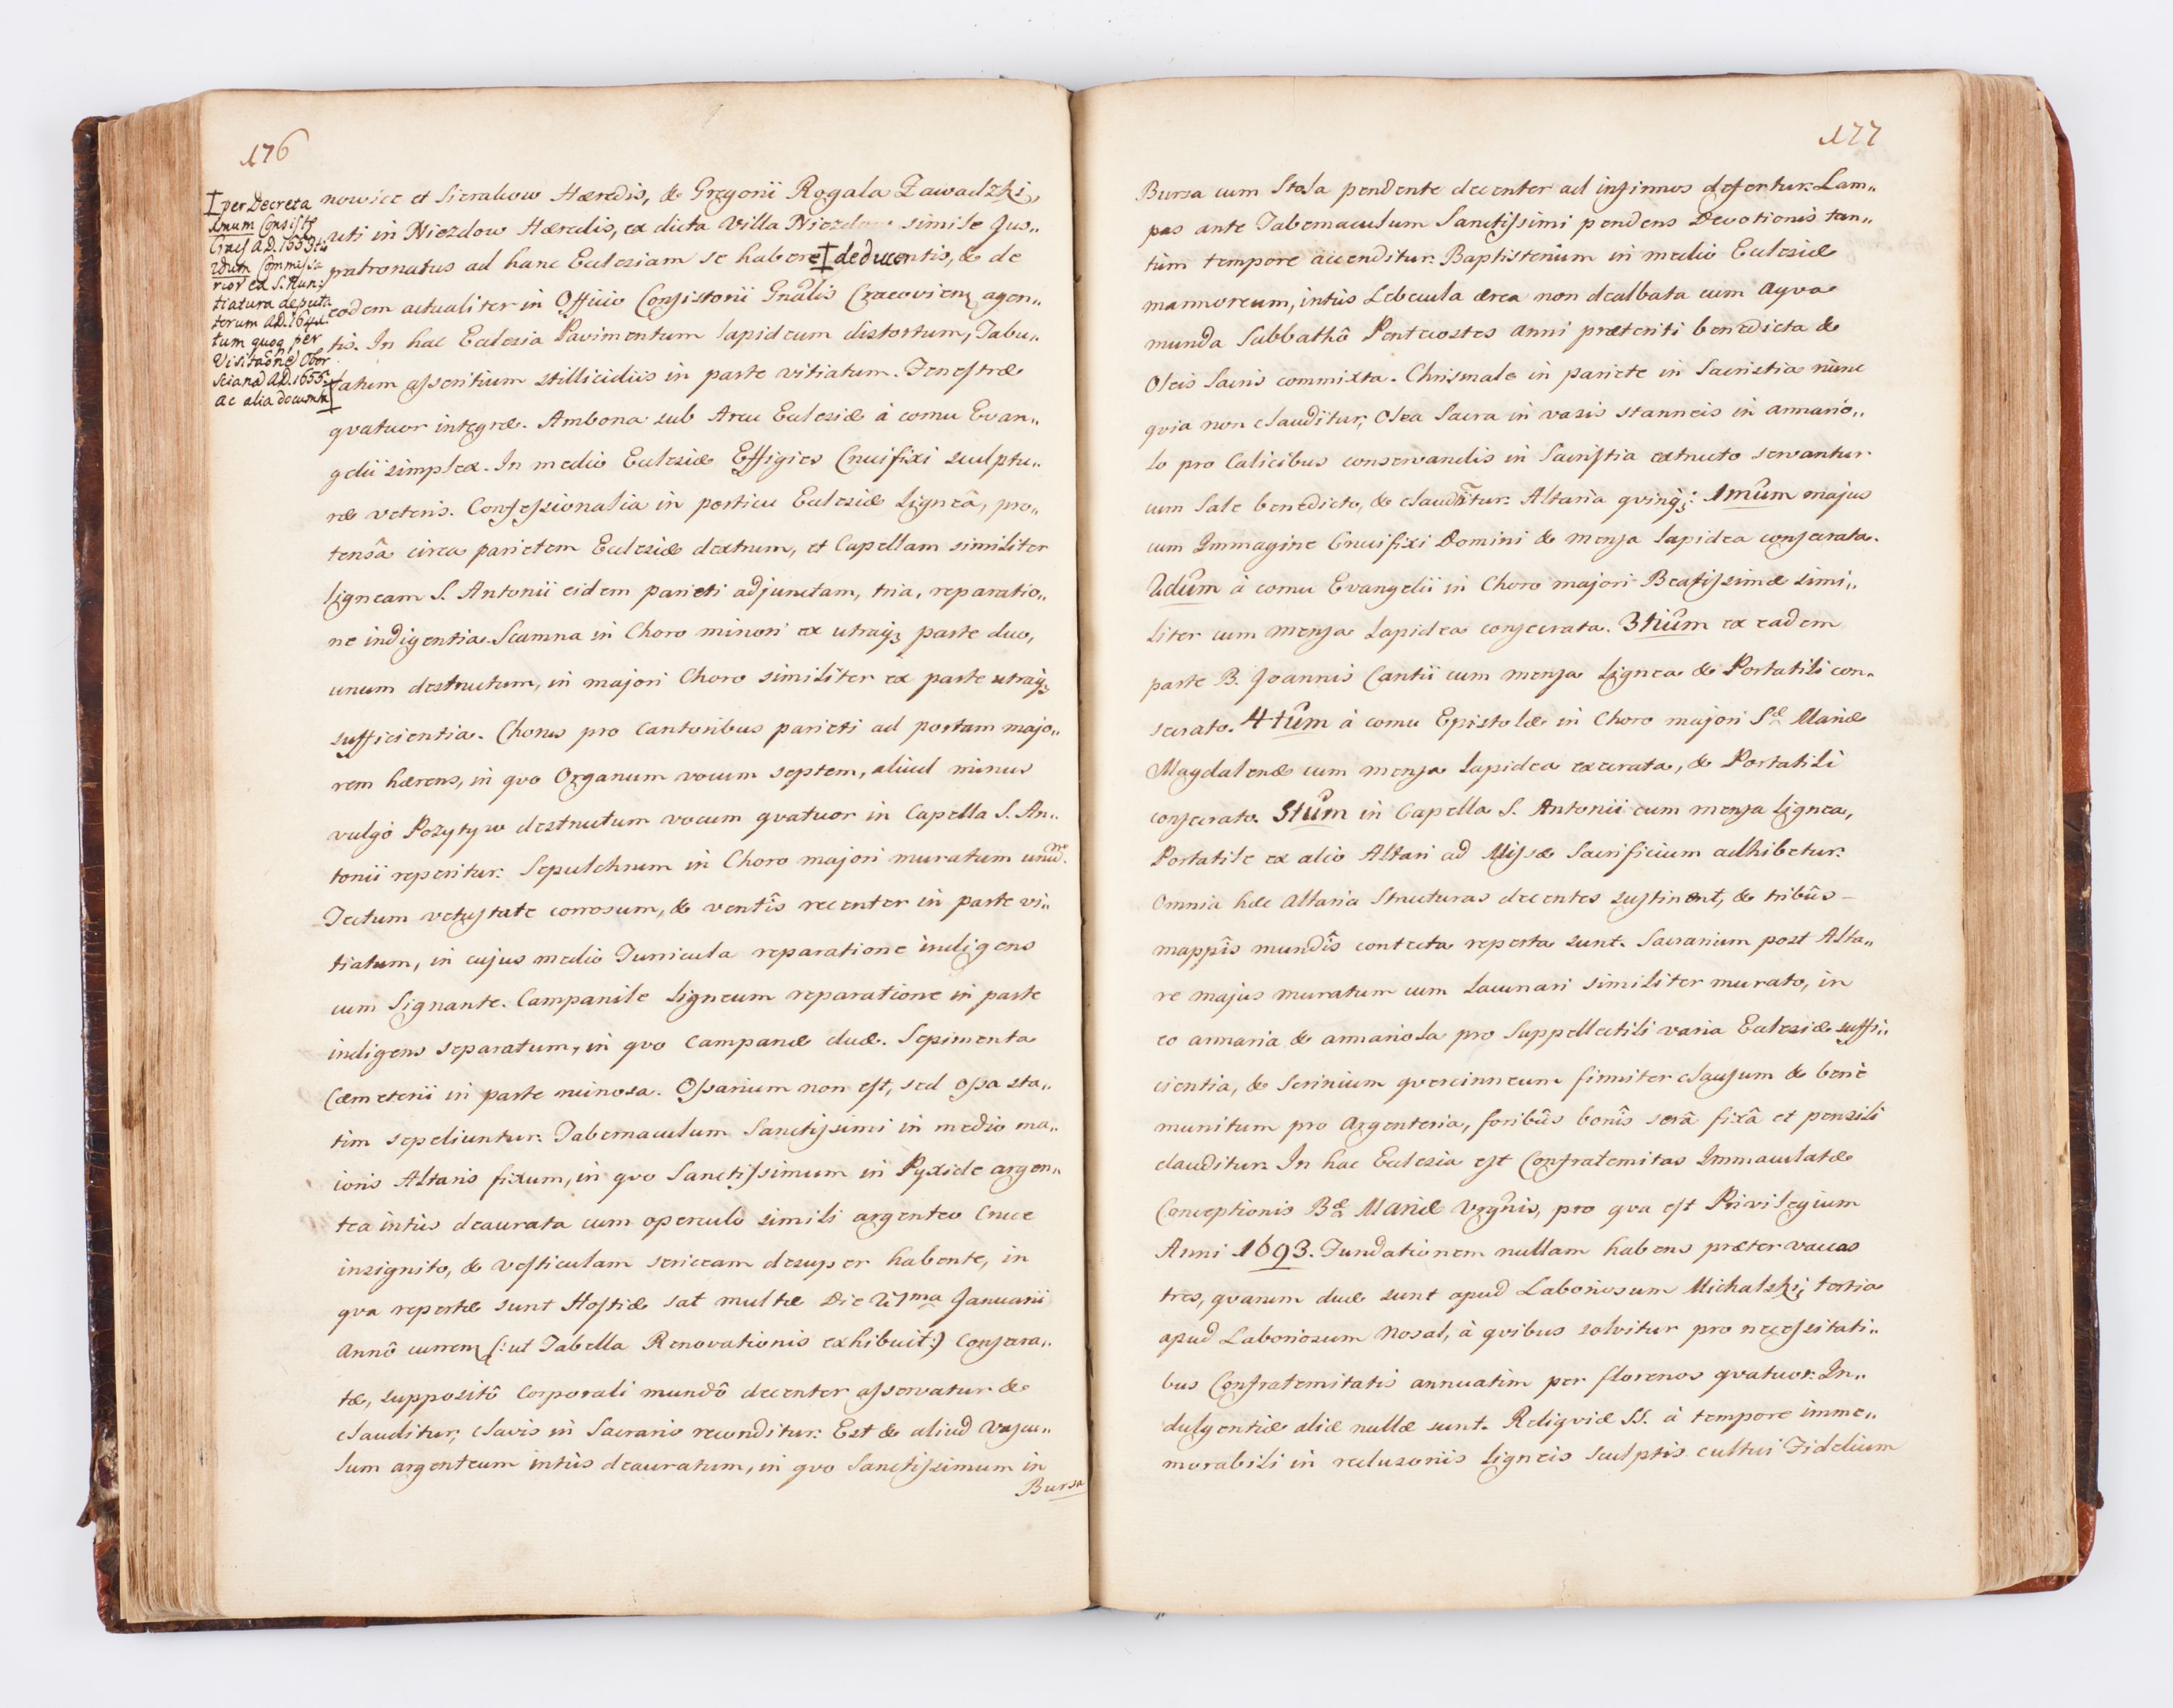 176
† per Decreta
1mum Consistŷ
Cracs A.D. 1553 tū
2dum Commissa
rior ex S. Nun:
tiatura deputa
torum A.D. 1641.
tum quoq per
Visitaonē Ober
sciana A.D. 1655.
ac alia documta
nowice et Sierakow Hæredis, & Gregorii Rogala Zawadzki,
uti in Niezdow Hæredis, ex dicta Villa simile Jus„
patronatus ad hanc Ecclesiam se habere † deducentis, & de
eodem actualiter in Officio Consistorii Gnâlis Cracovien agen„
tis. In hac Ecclesia Pavimentum lapideum distortum, Tabu„
latum asseritium stillicidiis in parte vitiatum. Fenestræ
qvatuor integræ. Ambona sub Arcu Ecclesiæ à cornu Evan„
gelii simplex. In medio Ecclesiæ Effigies Crucifixi sculptu„
ræ veteris. Confessionalia in porticu Ecclesiæ Ligneâ, pro„
tensâ circa parietem Ecclesiæ dextrum, et Capellam similiter
ligneam S. Antonii eidem parieti adjunctam, tria, reparatio„
ne indigentia. Scamna in Choro minori ex utraq; parte duo,
unum destructum, in majori Choro similiter ex parte utraq;
sufficientia. Chorus pro Cantoribus parieti ad portam majo„
rem hærens, in qvo Organum vocum septem, aliud minus
vulgò Pozytyw destructum vocum qvatuor in Capella S. An„
tonii reperitur. Sepulchrum in Choro majori muratum unū.
Tectum vetustate corrosum, & ventîs recenter in parte vi„
tiatum, in cujus medio Turricula reparatione indigens
cum Signante. Campanile ligneum reparatione in parte
indigens separatum, in qvo Campanæ duæ. Sepimenta
Cæmeterii in parte ruinosa. Ossarium non est, sed ossa sta„
tim sepeliuntur. Tabernaculum Sanctissimi in medio ma„
ioris Altaris fixum, in qvo Sanctissimum in Pyxide argen„
tea intùs deaurata cum operculo simili argenteo Cruce
insignito, & vesticulam sericeam desuper habente, in
qva repertæ sunt Hostiæ sat multæ Die 21ma Januarii
Annô curren (: ut Tabella Renovationis exhibuit :) Consecra„
tæ, suppositô Corporali mundô decenter asservatur &
clauditur, clavis in Sacrario reconditur. Est & aliud Vascu„
lum argenteum intùs deauratum, in qvo Sanctissimum in
Bursa
177
Bursa cum Stola pendente decenter ad infirmos defertur. Lam„
pas ante Tabernaculum Sanctissimi pendens Devotionis tan„
tùm tempore accenditur. Baptisterium in medio Ecclesiæ
marmoreum, intùs Lebecula ærea non dealbata cum Aqva
munda Sabbathô Pentecostes Anni præteriti benedicta &
Oleis Sacris commixta. Chrismale in pariete in Sacristia nunc
qvia non clauditur, Olea Sacra in vasis stanneis in armario„
lo pro Calicibus conservandis in Sacristia extructo servantur
cum Sale benedicto, & clauditur. Altaria qvinq;: 1mum majus
cum Immagine Crucifixi Domini & mensa lapidea consecrata.
2dum à cornu Evangelii in Choro majori Beatissimæ simi„
liter cum mensa Lapidea consecrata. 3tium ex eadem
parte B. Joannis Cantii cum mensa Lignea & Portatili con„
secrato. 4tum à cornu Epistolæ in Choro majori Sæ Mariæ
Magdalenæ cum mensa lapidea execrata, & Portatili
consecrato. 5tum in Capella S. Antonii cum mensa lignea,
Portatile ex alio Altari ad Missæ Sacrificium adhibetur.
Omnia hæc Altaria Structuras decentes sustinent, & tribûs
mappîs mundîs contecta reperta sunt. Sacrarium post Alta„
re majus muratum cum Lacunari similiter murato, in
eo armaria & armariola pro Suppellectili varia Ecclesiæ suffi„
cientia, & Scrinium qvercinneum firmiter clausum & benè
munitum pro Argenteria, foribûs bonîs serâ fixâ et pensili
clauditur. In hac Ecclesia est Confraternitas Immaculatæ
Conceptionis Bæ Mariæ Vrgnis, pro qva est Privilegium
Anni 1693. Fundationem nullam habens præter vaccas
tres, qvarum duæ sunt apud Laboriosum Michalski, tertia
apud Laboriosum Nosal, à qvibus solvitur pro necessitati„
bus Confraternitatis annuatim per florenos qvatuor. In„
dulgentiæ aliæ nullæ sunt. Reliqviæ SS. à tempore imme„
morabili in reclusoriis ligneis sculptis cultui Fidelium